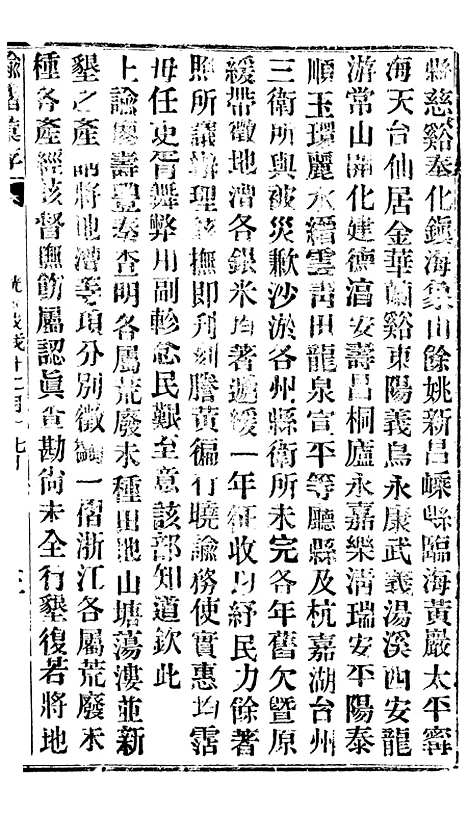 縣慈谿奉化鎮海象山餘姚新昌嵊縣臨海黃巖太平寧
海天台仙居金華蘭谿東陽義烏永康武義湯溪西安龍
游常山開化建德淳安壽昌桐廬永嘉樂清瑞安平陽泰
順玉環麗水縉雲靑田龍泉宣平等廳縣及杭嘉湖台州
三衛所與被災歉沙淤各州縣衛所未完各年舊欠暨原
緩帶徵地漕各銀米均著遞緩一年征收以紓民力餘著
照所議辦理該撫即刊刻謄黃徧行曉諭務使實惠均霑
毋任吏胥舞弊用副軫念民艱至意該部知道欽此
上諭廖壽豐奏查明各屬荒廢未種田地山塘蕩漊並新
墾之產請將地漕等項分別徵蠲一摺浙江各屬荒廢未
種各產經該督撫飭屬認眞查勘尚未全行墾復若將地
諭摺彙存
三